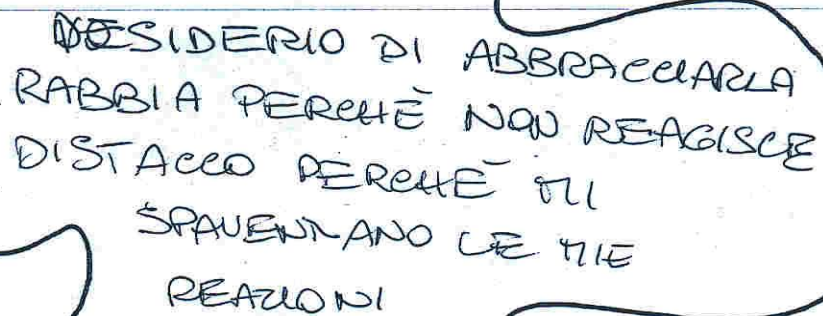 DESIDERIO DI ABBRACCIARLA
RABBIA PERCHÈ NON REAGISCE
DISTACCO PERCHÈ MI
SPAVENTANO LE MIE
REAZIONI